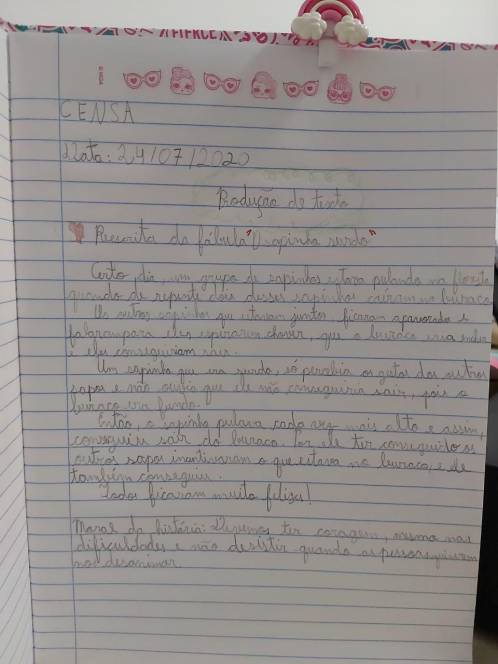 CENSA
Data: 24/07/2020
Produção de texto
Reescrita da fábula "O sapinho surdo"
Certo dia, um grupo de sapinhos estava pulando na floresta
quando de repente dois desses sapinhos caíram no buraco.
Os outros sapinhos que estavam juntos, ficaram apavorado e
falaram para eles esperarem chover, que o buraco iria encher
e eles conseguiriam sair.
Um sapinho que era surdo, só percebia os gestos dos outros
sapos e não ouvia que ele não conseguiria sair, pois o
buraco era fundo.
Então, o sapinho pulava cada vez mais alto e assim,
conseguiu sair do buraco. Por ele ter conseguido os
outros sapos incentivaram o que estava no buraco, e ele
também conseguiu.
Todos ficaram muito felizes!
Moral da história: Devemos ter coragem, mesmo nas
dificuldades e não desistir quando as pessoas quiserem
nos desanimar.